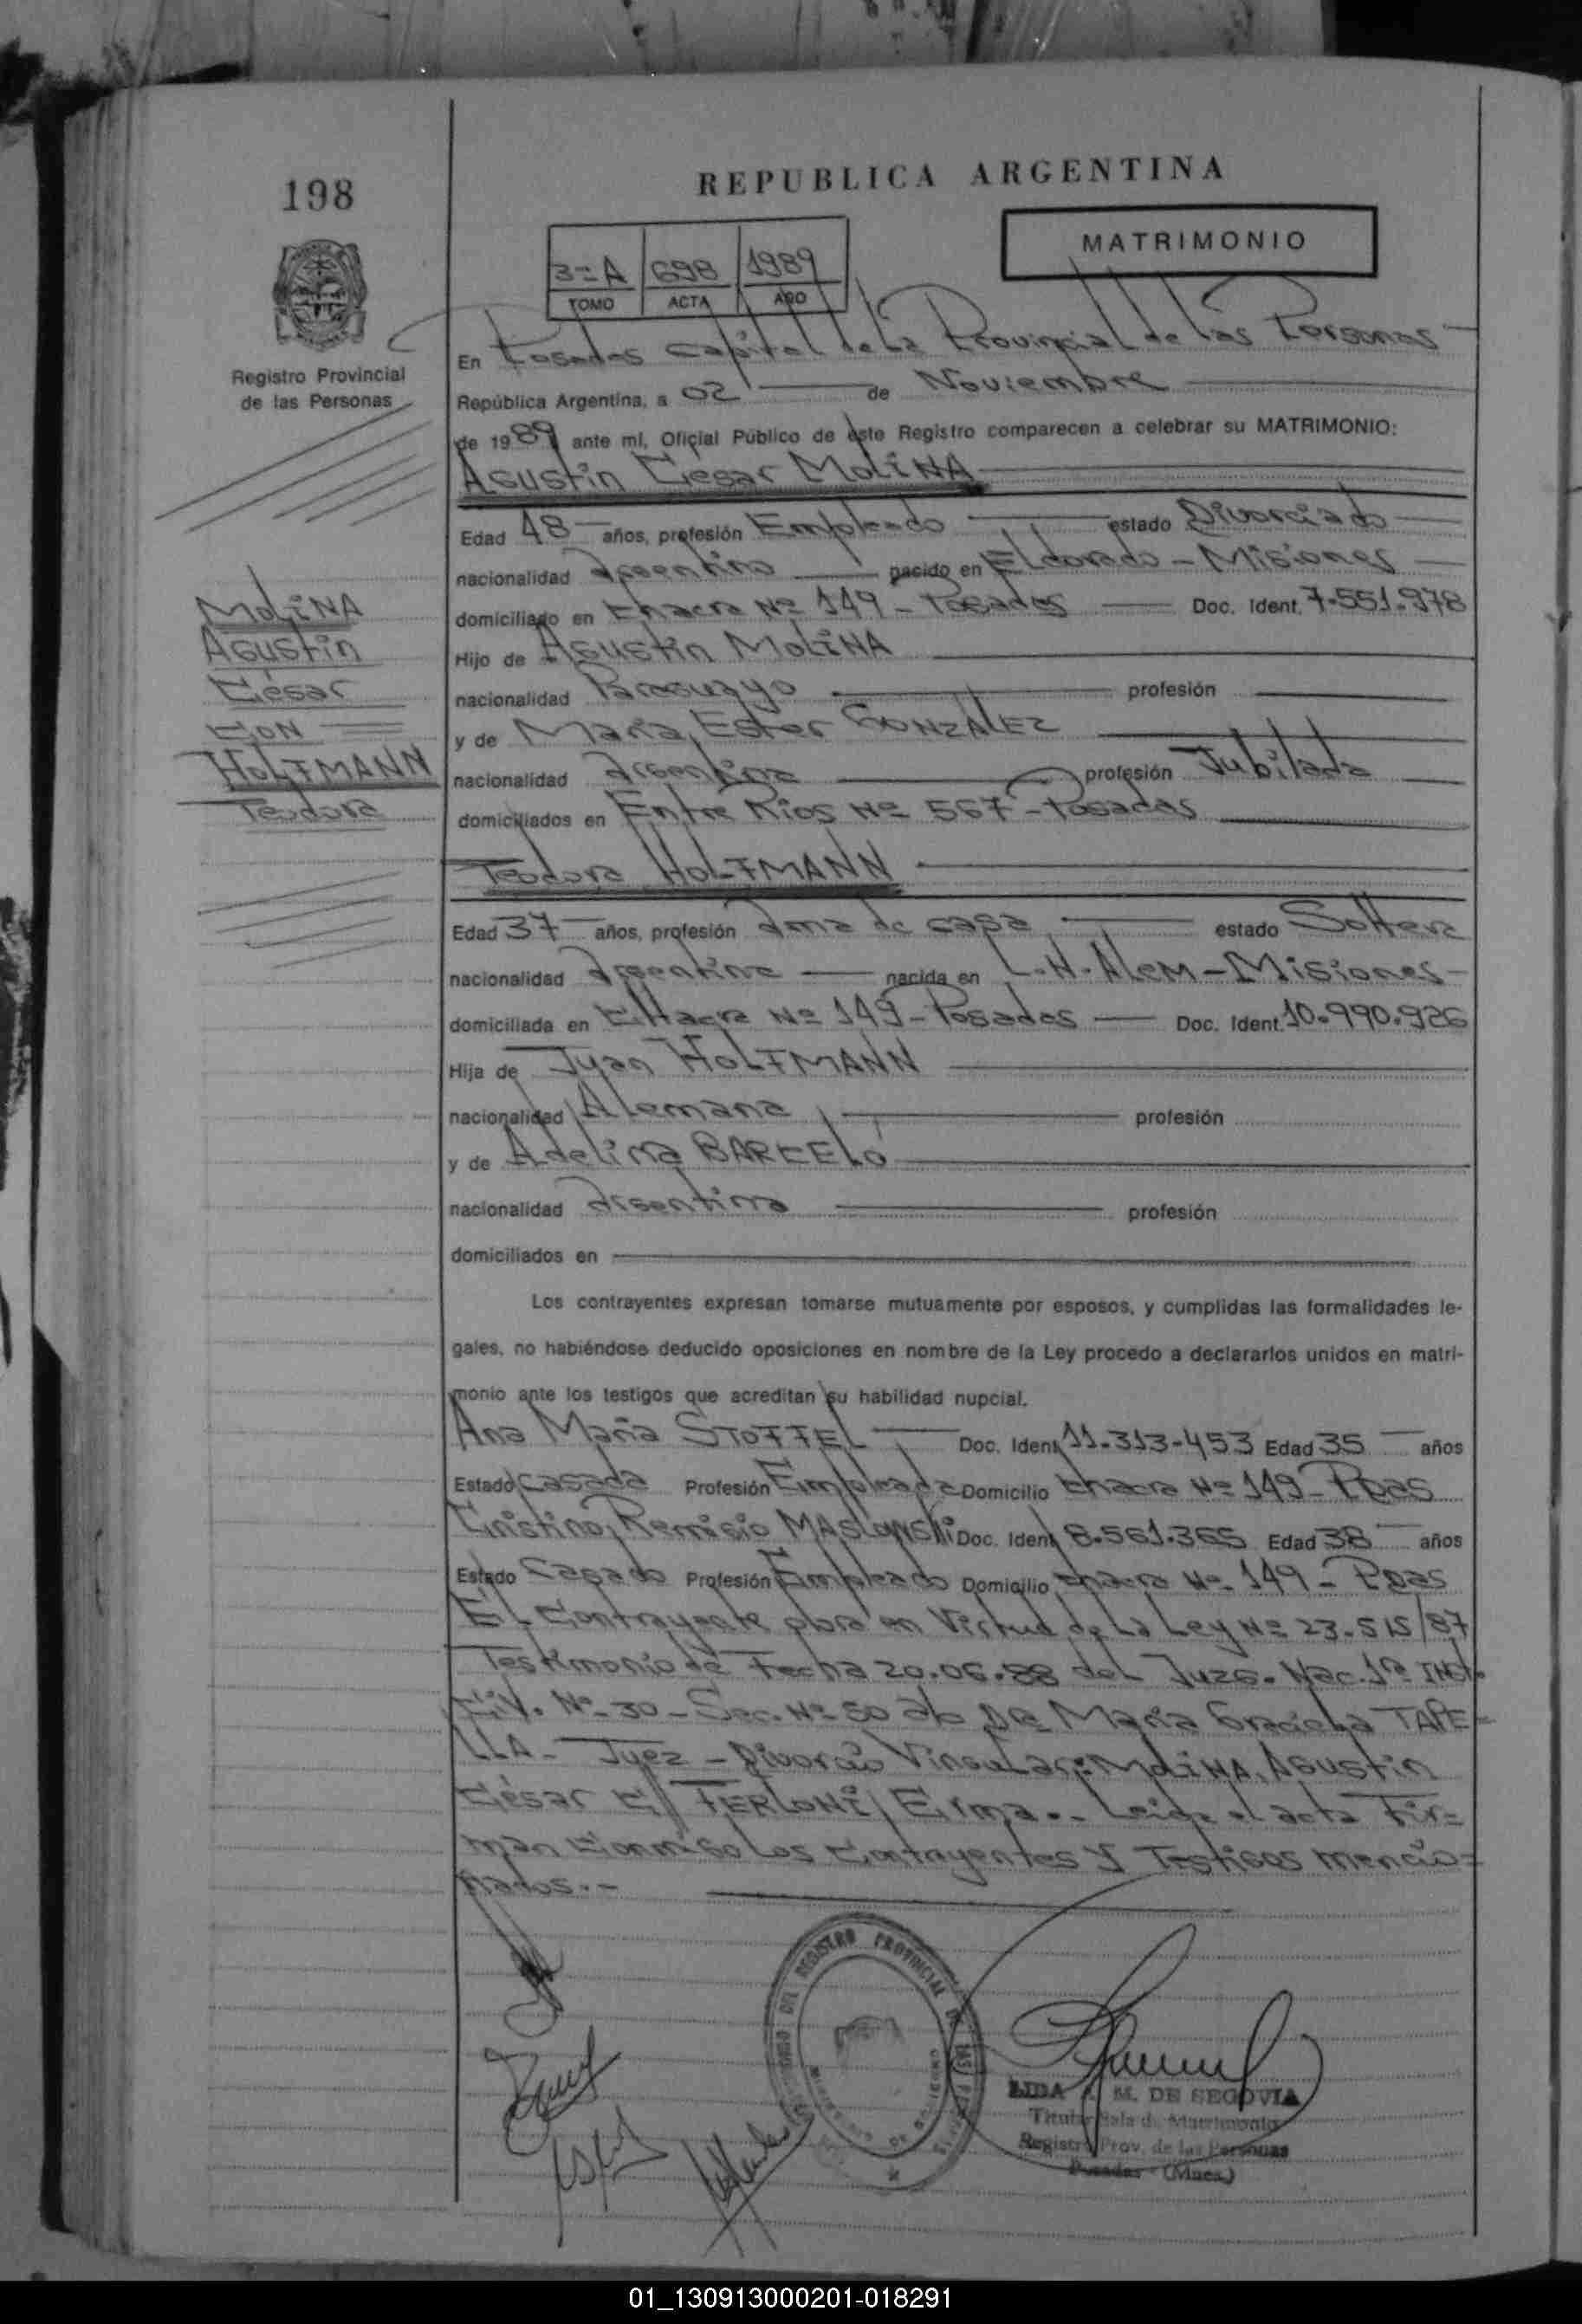 198
REPUBLICA ARGENTINA
MATRIMONIO
3=A 698 1989
TOMO ACTA AÑO
Registro Provincial
de las Personas
En Posadas Capital de La Provincial de las Personas
República Argentina, a 02 de Noviembre
de 1989 ante mí, Oficial Público de este Registro comparecen a celebrar su MATRIMONIO:
Agustín Cesar MOLINA
Edad 48 años, profesión Empleado estado Divorciado
nacionalidad Argentino nacido en Eldorado - Misiones
domiciliado en Chacra Nº 149 - Posadas Doc. Ident. 7.551.978
Hijo de Agustín MOLINA
nacionalidad Paraguayo profesión
y de María Ester GONZALEZ
nacionalidad Argentina profesión Jubilada
domiciliados en Entre Rios Nº 567 - Posadas
MOLINA
Agustín
César
CON
HOLFMANN
Teodora
Teodora HOLFMANN
Edad 37 años, profesión Ama de casa estado Soltera
nacionalidad Argentina nacida en L.N. ALEM - Misiones
domiciliada en Chacra Nº 149 - Posadas Doc. Ident. 10.990.926
Hija de Juan HOLFMANN
nacionalidad Alemana profesión
y de Adelina BARCELÓ
nacionalidad Argentina profesión
domiciliados en
Los contrayentes expresan tomarse mutuamente por esposos, y cumplidas las formalidades le-
gales, no habiéndose deducido oposiciones en nombre de la Ley procedo a declararlos unidos en matri-
monio ante los testigos que acreditan su habilidad nupcial.
Ana María STOFFEL Doc. Ident. 11.313.453 Edad 35 años
Estado Casada Profesión Empleada Domicilio Chacra Nº 149 - Pdas
Cristino Remisio MASLOWSKI Doc. Ident. 8.561.365 Edad 38 años
Estado Casado Profesión Empleado Domicilio Chacra Nº 149 - Pdas
El Contrayente obra en Virtud de La Ley Nº 23.515/87
Testimonio de Fecha 20.06.88 del Juzg. Nac. 1ª Inst.
Civ. Nº 30 - Sec. Nº 60 a/c Dra María Graciela TAPE=
LLA - Juez - Divorcio Vincular: MOLINA, Agustín
César C/ FERLONI, Eirma.- Leida el acta Fir=
man conmigo Los Contrayentes y Testigos mencio=
nados.-
DEL REGISTRO PROVINCIAL DE LAS PERSONAS
LIDA M. DE SEGOVIA
Titular Sala de Matrimonio
Registro Prov. de las Personas
Posadas - (Mnes.)
01_130913000201-018291